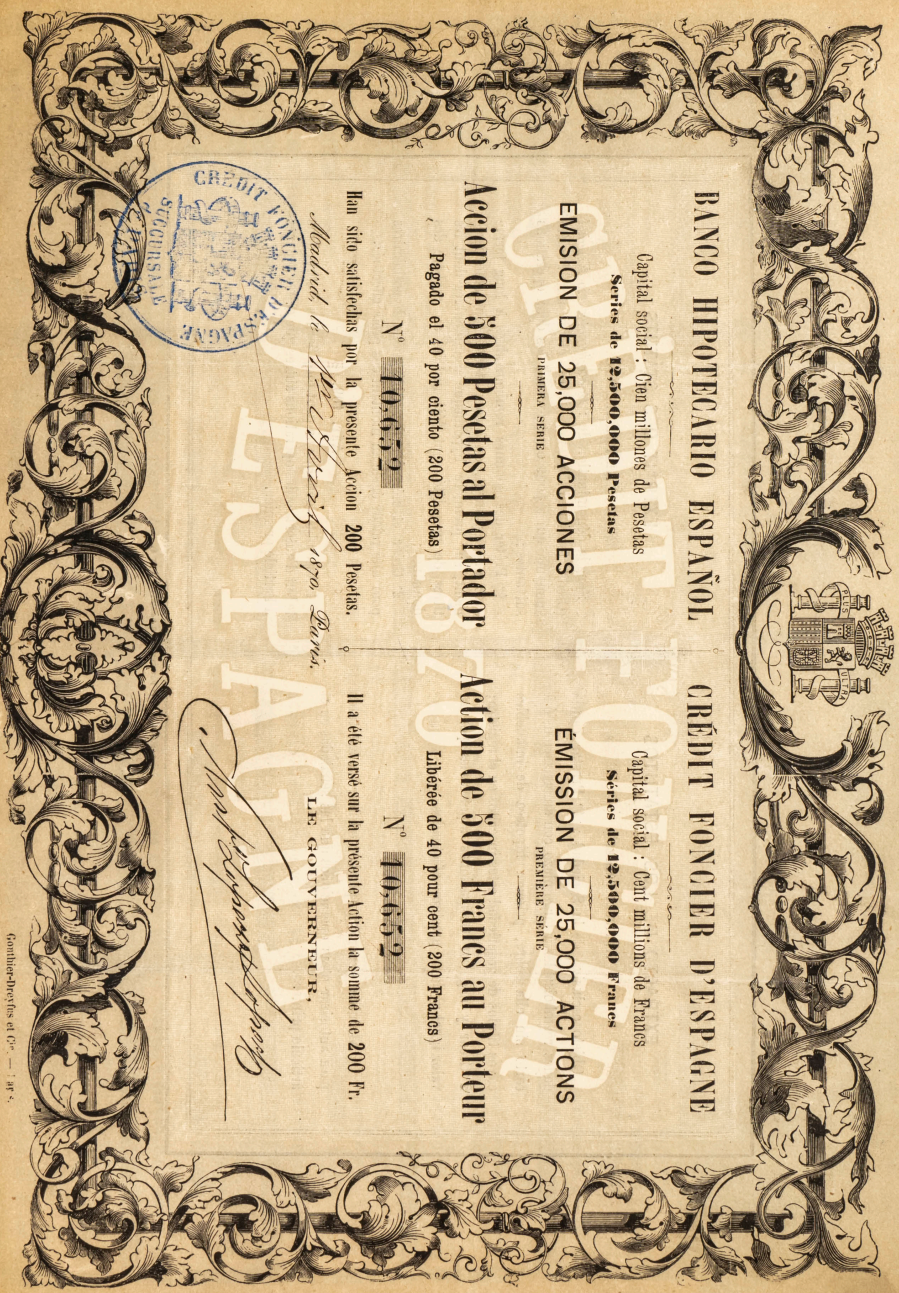 PLUS ULTRA
BANCO HIPOTECARIO ESPAÑOL
Capital social : Cien millones de Pesetas
Series de 12,500,000 Pesetas
EMISION DE 25,000 ACCIONES
PRIMERA SÉRIE
Accion de 500 Pesetas al Portador
Pagado el 40 por ciento (200 Pesetas)
Nº 10,652
Han sido satisfechas por la presente Accion 200 Pesetas.
Madrid, le
1870 Paris,
CRÉDIT FONCIER D'ESPAGNE
Capital social : Cent millions de Francs
Séries de 12,500,000 Francs
ÉMISSION DE 25,000 ACTIONS
PREMIÈRE SÉRIE
Action de 500 Francs au Porteur
Libérée de 40 pour cent (200 Francs)
Nº 10,652
Il a été versé sur la présente Action la somme de 200 Fr.
LE GOUVERNEUR,
CRÉDIT FONCIER
1870
D'ESPAGNE
CRÉDIT FONCIER D'ESPAGNE
SUCCURSALE
Gonthier-Dreyfus et Cie. — Paris.